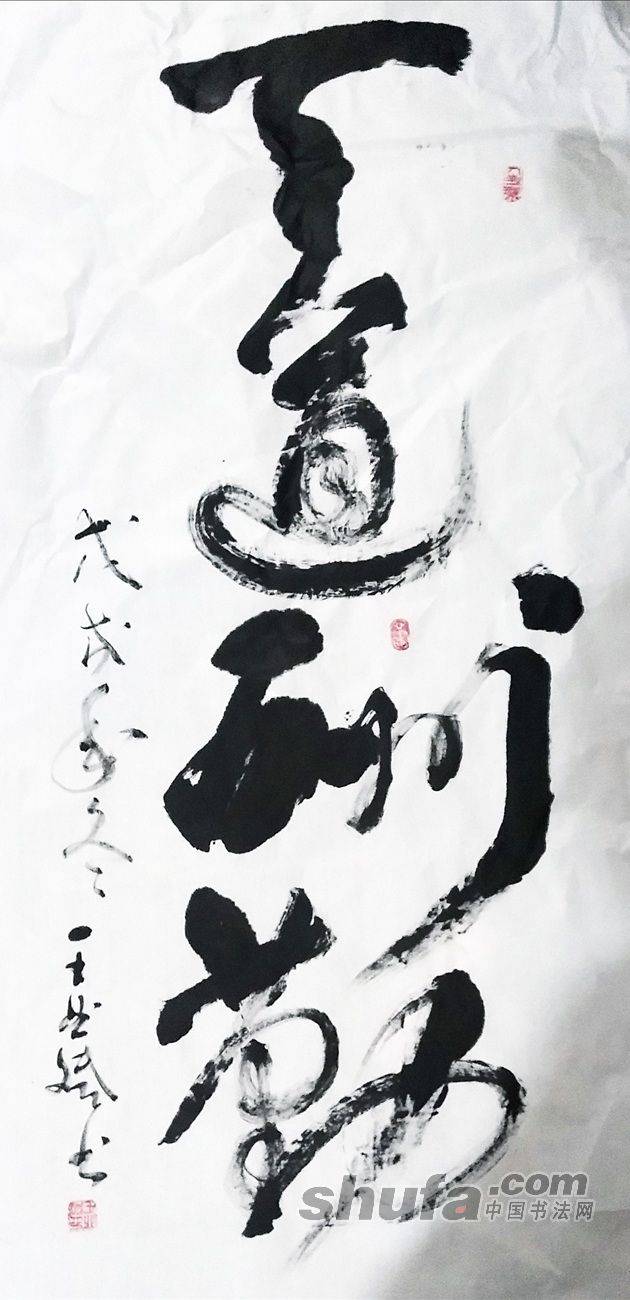 天道酬勤
戊戌年冬王书
shufa.com
中国书法网